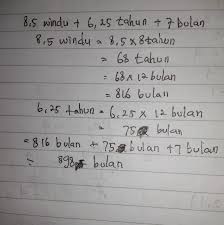 8,5 windu + 6,25 tahun + 7 bulan
8,5 windu = 8,5 x 8 tahun
= 68 tahun
= 68 x 12 bulan
= 816 bulan
6,25 tahun = 6,25 x 12 bulan
= 75 bulan
= 816 bulan + 75 bulan + 7 bulan
= 898 bulan